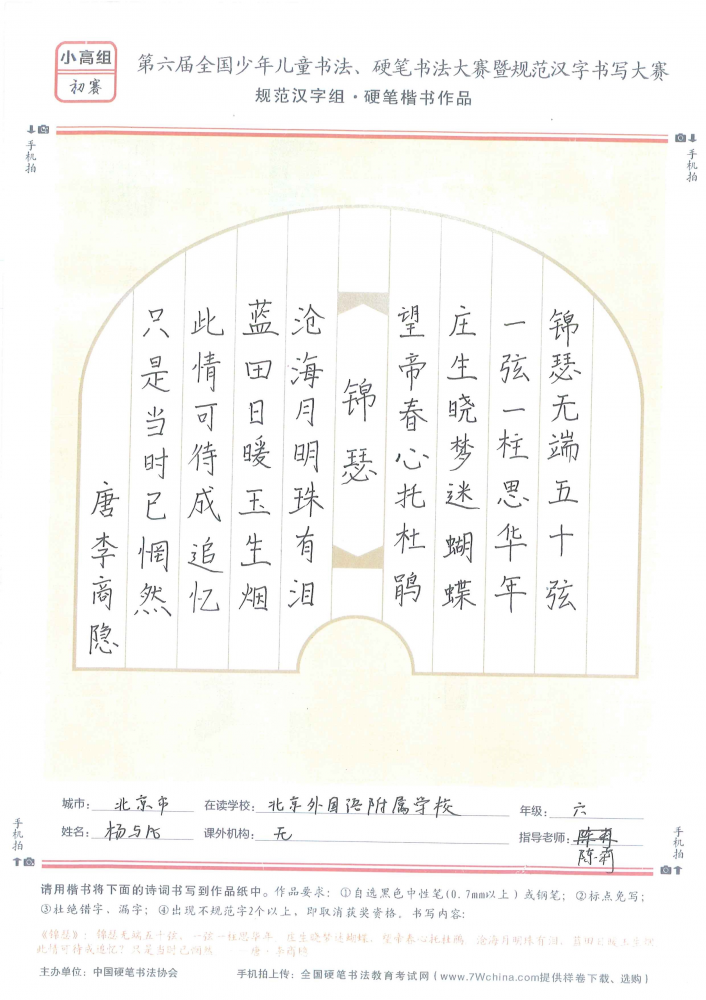 小高组
初赛
第六届全国少年儿童书法、硬笔书法大赛暨规范汉字书写大赛
规范汉字组·硬笔楷书作品
手机拍
手机拍
锦瑟无端五十弦
一弦一柱思华年
庄生晓梦迷蝴蝶
望帝春心托杜鹃
锦瑟
沧海月明珠有泪
蓝田日暖玉生烟
此情可待成追忆
只是当时已惘然
唐李商隐
城市：北京市 在读学校：北京外国语附属学校 年级：六
姓名：杨 课外机构：无 指导老师：
陈莉
手机拍
手机拍
请用楷书将下面的诗词书写到作品纸中。作品要求：①自选黑色中性笔(0.7mm以上)或钢笔；②标点免写；
③杜绝错字、漏字；④出现不规范字2个以上，即取消获奖资格。书写内容：
《锦瑟》：锦瑟无端五十弦，一弦一柱思华年。庄生晓梦迷蝴蝶，望帝春心托杜鹃。沧海月明珠有泪，蓝田日暖玉生烟。
此情可待成追忆？只是当时已惘然。——唐·李商隐
主办单位：中国硬笔书法协会 手机拍上传：全国硬笔书法教育考试网（www.7Wchina.com提供样卷下载、选购）